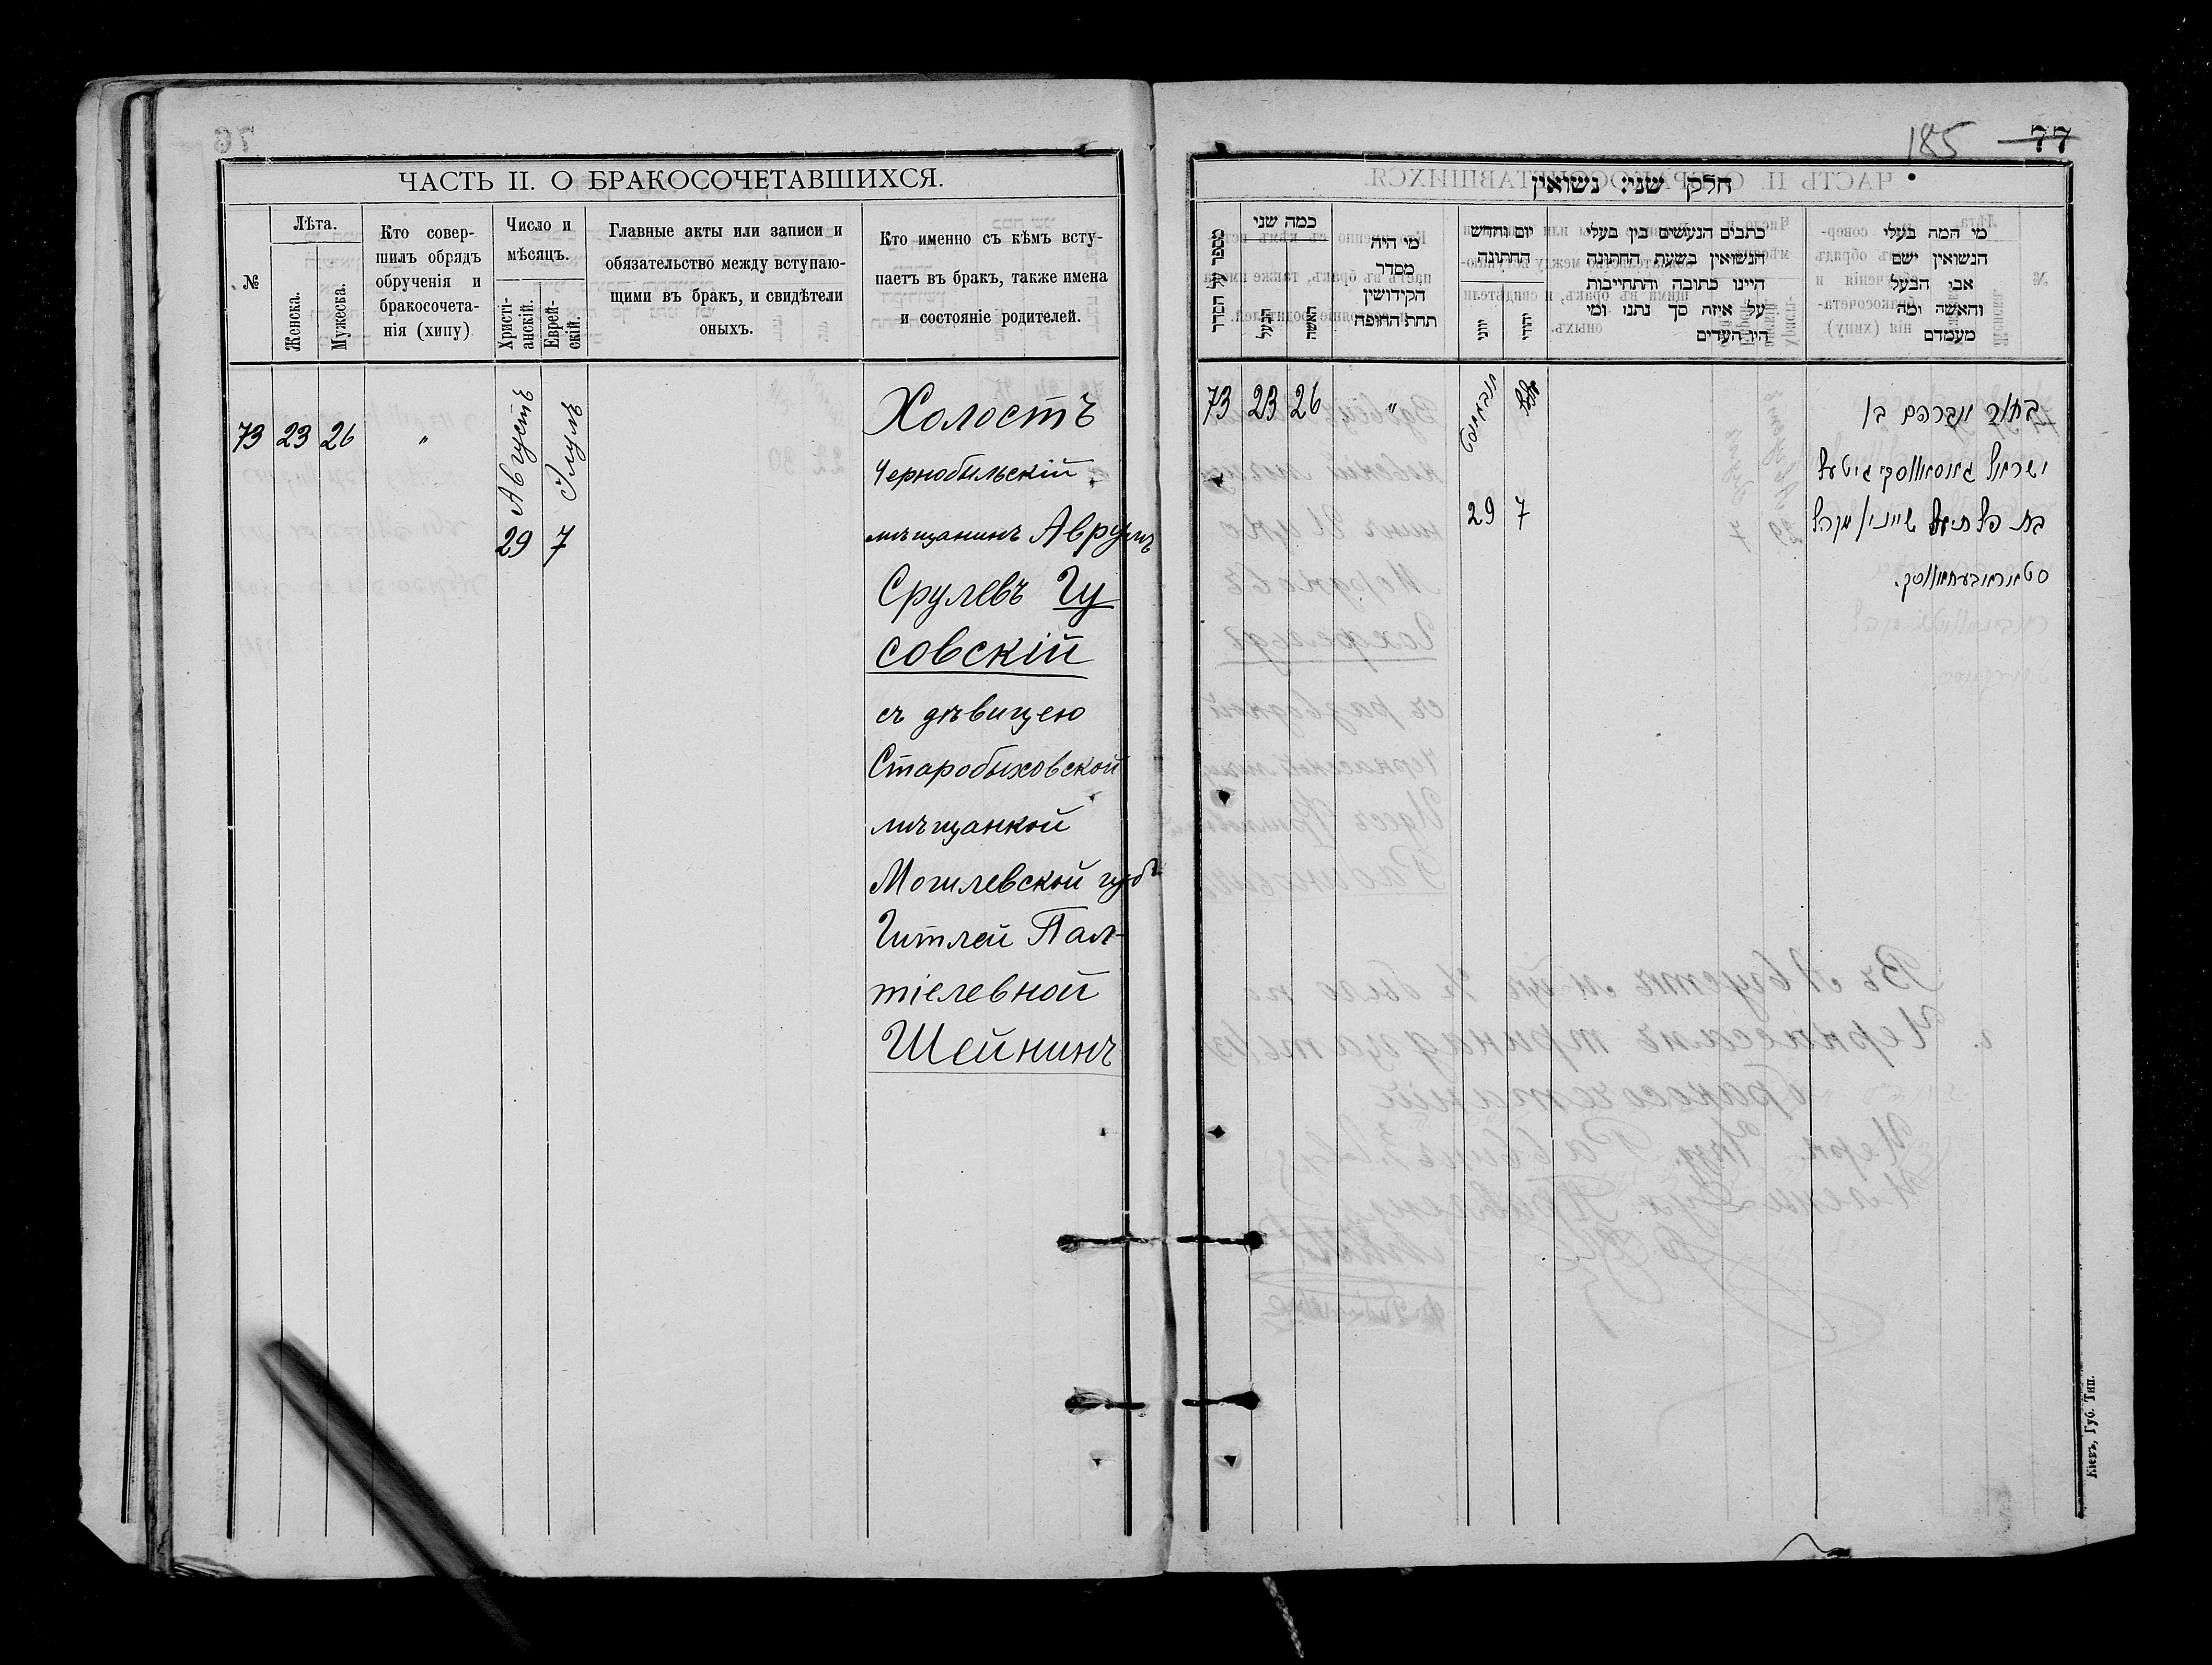 ЧАСТЬ II. О БРАКОСОЧЕТАВШИХСЯ.
№
Лѣта.
Женска.
Мужеска.
Кто совер-
шилъ обрядъ
обрученія и
бракосочета-
нія (хипу)
Число и
мѣсяцъ.
Христі-
анскій.
Еврей-
скій.
Главные акты или записи и
обязательство между вступаю-
щими въ бракъ, и свидѣтели
оныхъ.
Кто именно съ кѣмъ всту-
паетъ въ бракъ, также имена
и состояніе родителей.
73 23 26 "
Августъ
29
Элулъ
7
Холостъ
Чернобыльскій
мѣщанинъ Аврумъ
Срулевъ Гу
совскій
съ дѣвицею
Старобыховской
мѣщанкой
Могилевской губ
Гитлей Пал-
тіелевной
Шейнинъ
185 77
חלק שני: נשואין
מספר על הסדר
כמה שני
הבעל
האשה
מי היה
מסדר
הקידושין
תחת החופה
יום וחדש
החתונה
יוני
יהודי
כתבים הנעשים בין בעלי
הנשואין בשעת החתונה
היינו כתובה והתחייבות
על איזה סך נתנו ומי
היו העדים
מי המה בעלי
הנשואין ושם
אבי הבעל
והאשה ומה
מעמדם
73 23 26 "
אויגוסט
29
אלול
7
בחור אברהם בן
ישראל גוסאווסקי גיטעל
בת פלתיאל שיינין מקהל
סטאראבעחאווסק.
Кіевъ, Губ. Тип.